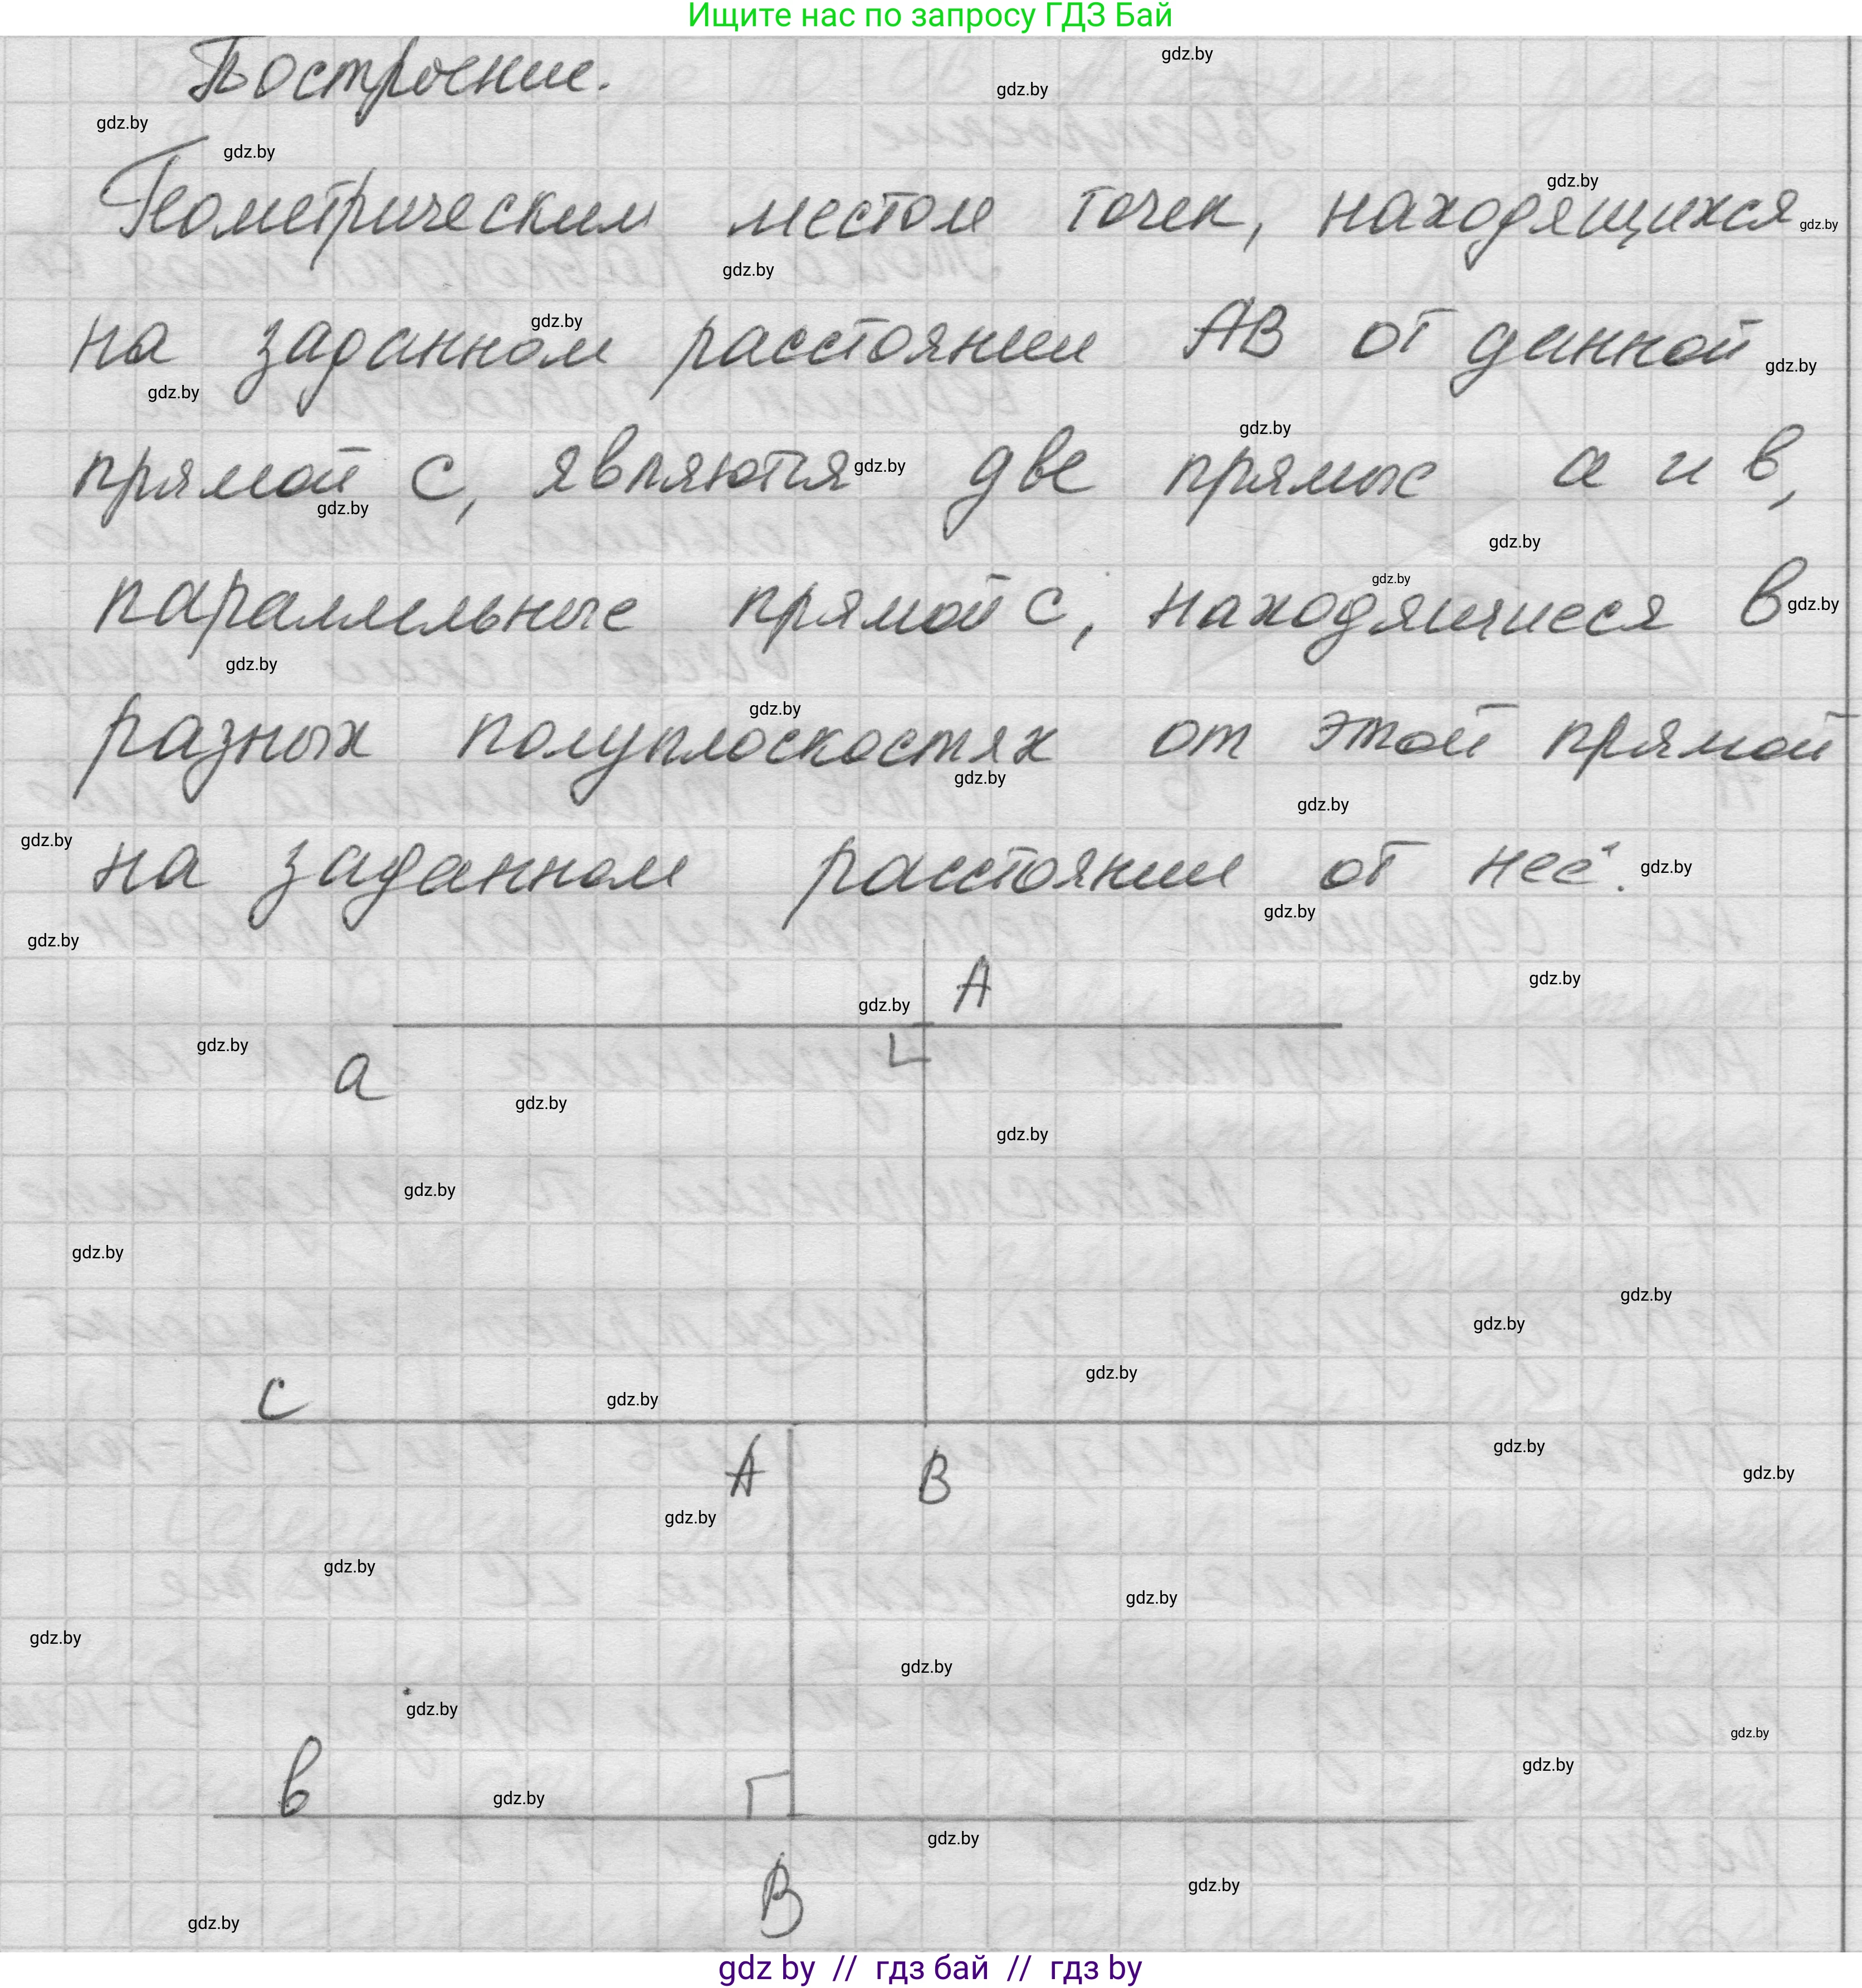 Ищите нас по запросу ГДЗ Бай
Построение.
Геометрическим местом точек, находящихся
на заданном расстоянии АВ от данной
прямой с, являются две прямые а и в,
параллельные прямой с, находящиеся в
разных полуплоскостях от этой прямой
на заданном расстоянии от неё.
А
а
с
А В
в
В
gdz.by
gdz by // гдз бай // гдз by